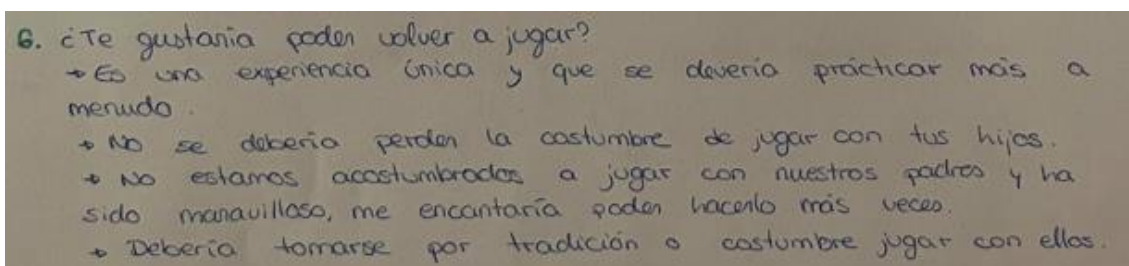 6. ¿Te gustaria poder volver a jugar?
→ Es una experiencia única y que se devería prácticar más a
menudo.
→ No se debería perder la costumbre de jugar con tus hijos.
→ No estamos acostumbrados a jugar con nuestros padres y ha
sido maravilloso, me encantaría poder hacerlo más veces.
→ Debería tomarse por tradición o costumbre jugar con ellos.